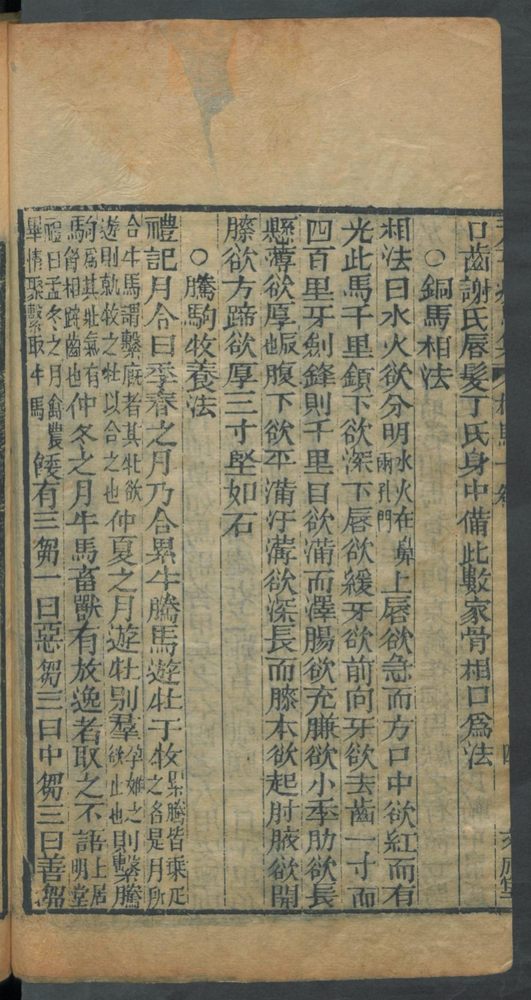 口齒謝氏唇髮丁氏身中備此數家骨相口爲法
○銅馬相法
相法曰水火欲分明水火在鼻兩孔門上唇欲急而方口中欲紅而有
光此馬千里頷下欲深下唇欲緩牙欲前向牙欲去齒一寸而
四百里牙劍鋒則千里目欲滿而澤腸欲充膁欲小季肋欲長
懸薄欲厚也腹下欲平滿汙溝欲深長而膝本欲起肘腋欲開
膝欲方蹄欲厚三寸堅如石
○騰駒牧養法
禮記月令曰季春之月乃合累牛騰馬遊牡于牧累騰皆乘疋之名是月所
合牛馬謂繫廐者其牝欲遊則就牧之牡以合之也仲夏之月遊牡别羣孕妊之欲止也則縶騰
駒爲其牡氣有馬脅相蹄齒也仲冬之月牛馬畜獸有放逸者取之不詰明堂上居
禮曰孟冬之月命農畢積聚繫取牛馬餧有三芻一曰惡芻二曰中芻三曰善芻